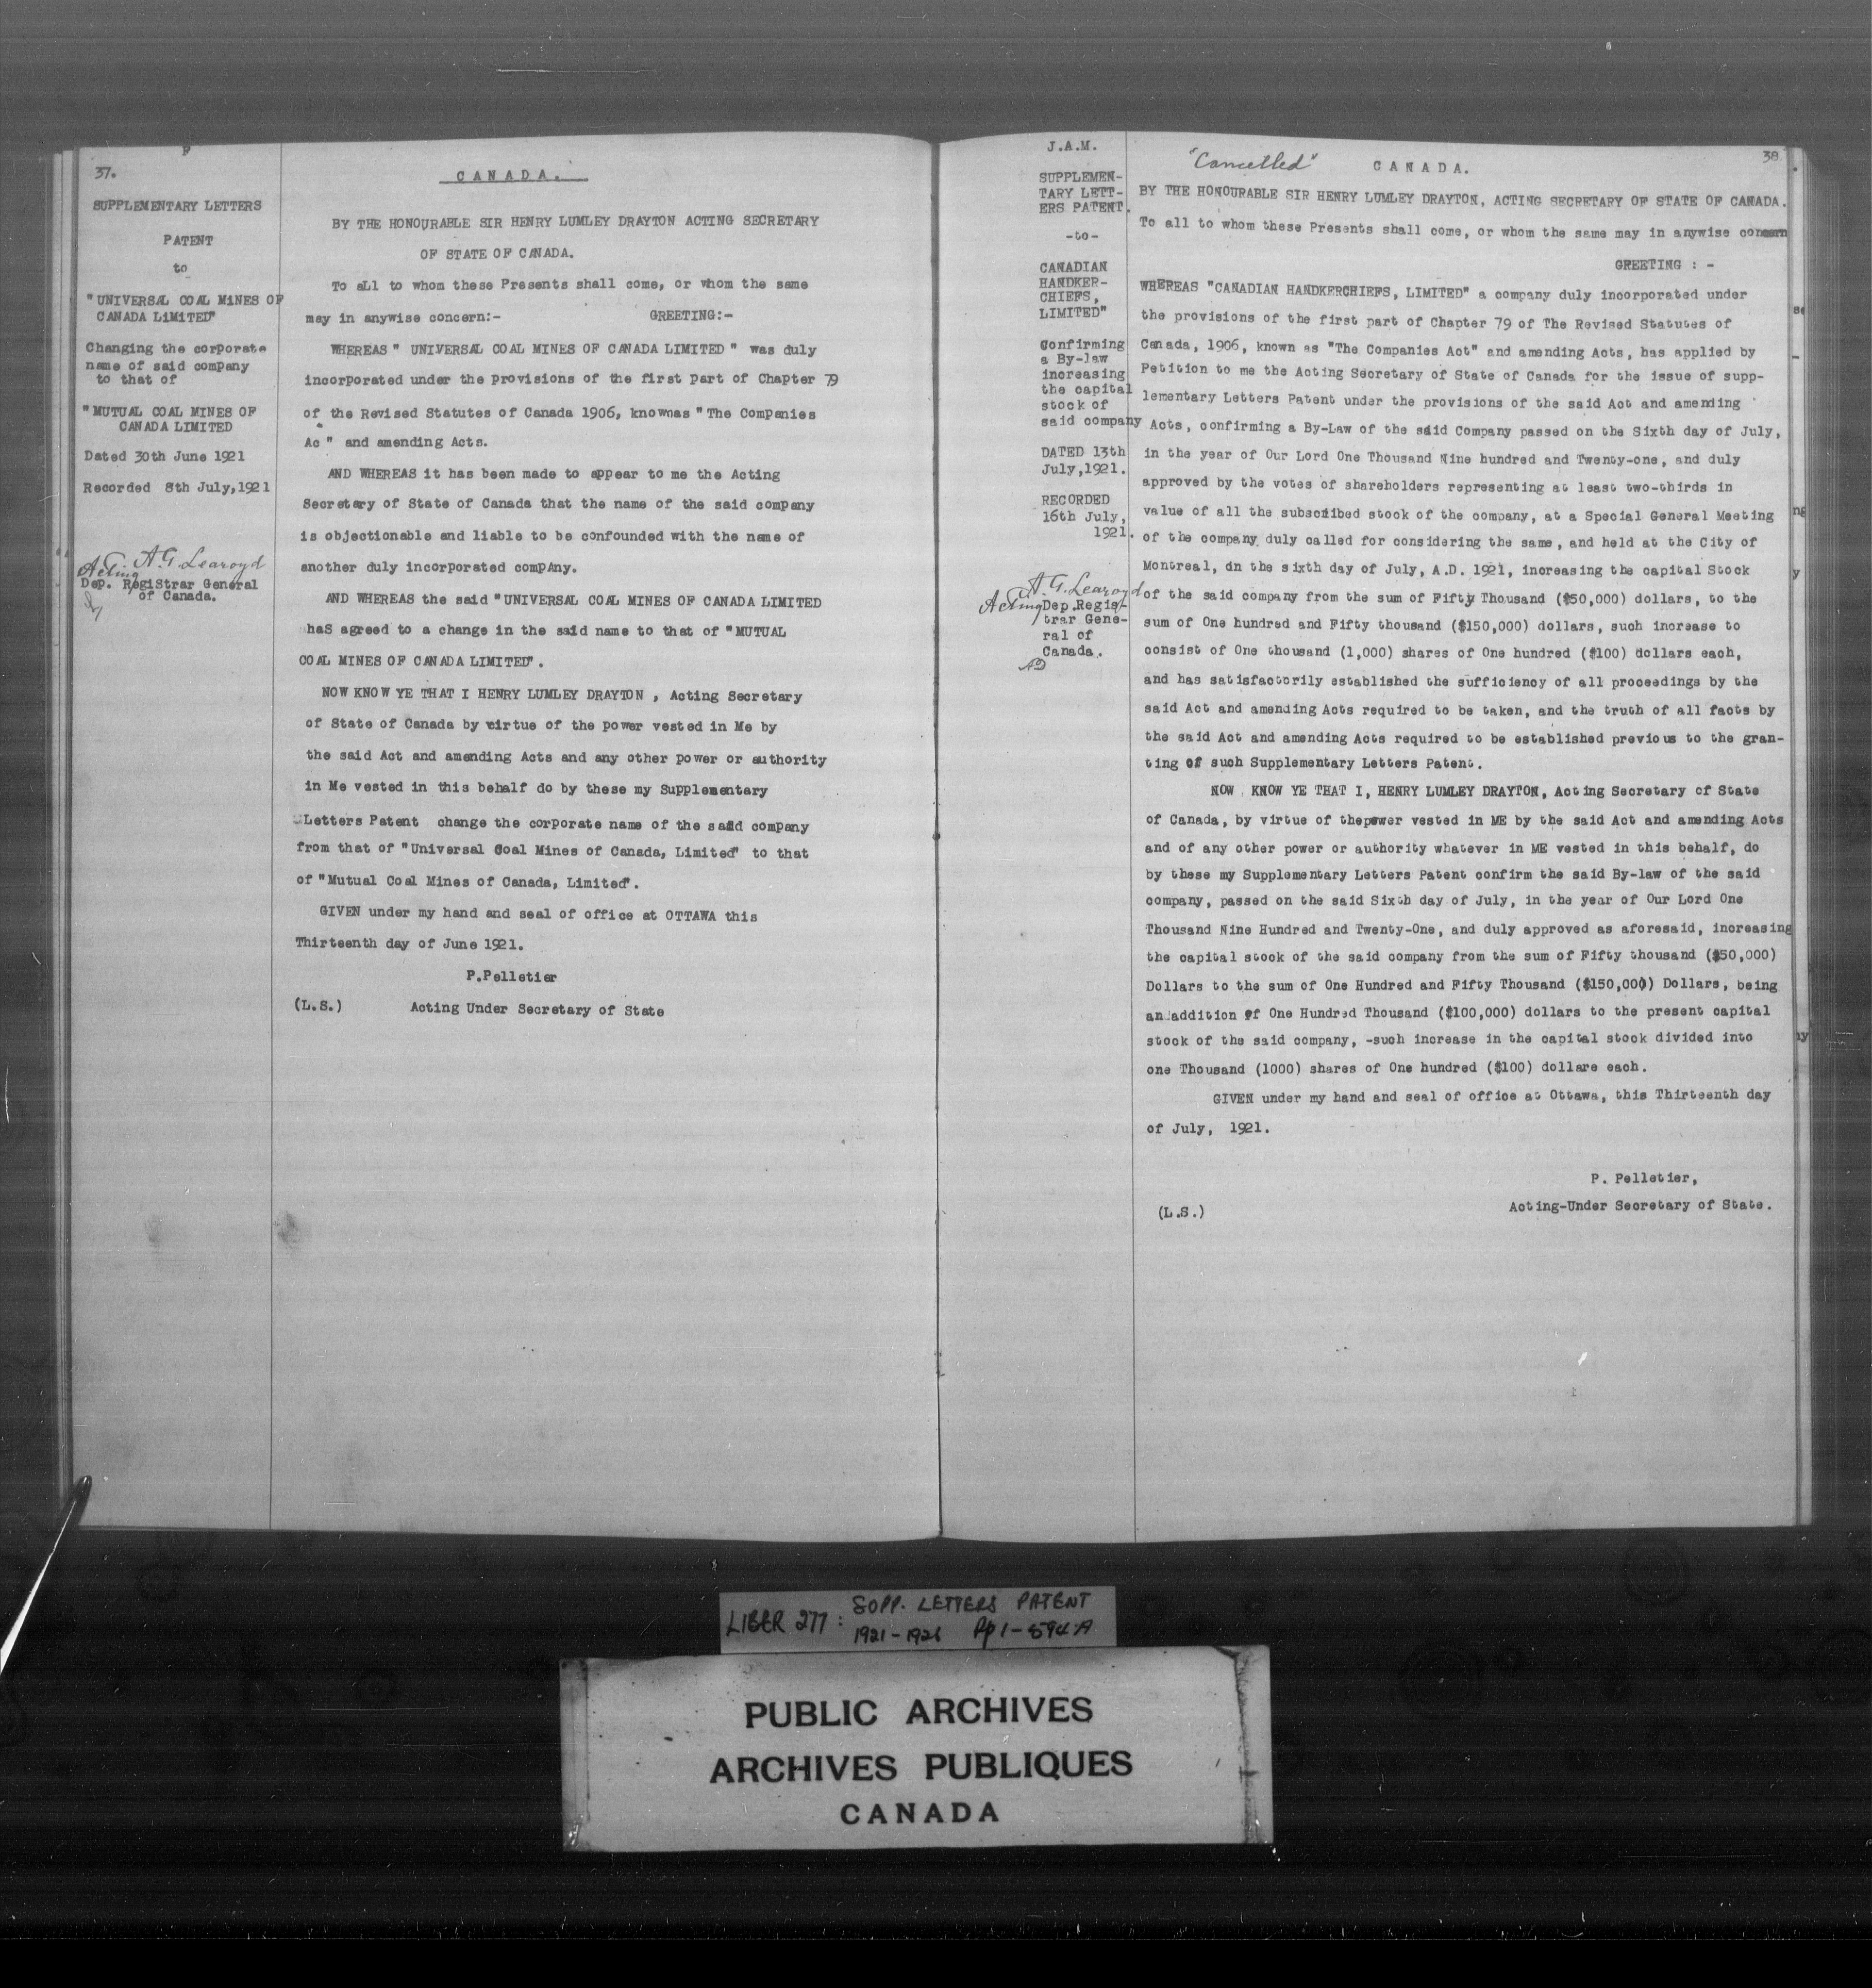 37.
SUPPLEMENTARY LETTERS
PATENT
to
"UNIVERSAL COAL MINES OF
CANADA LIMITED"
Changing the corporate
name of said company
to that of
"MUTUAL COAL MINES OF
CANADA LIMITED
Dated 30th June 1921
Recorded 8th July,1921
A.G. Learoyd
Acting
Dep. Registrar General
of Canada.
CANADA.
BY THE HONOURABLE SIR HENRY LUMLEY DRAYTON ACTING SECRETARY
OF STATE OF CANADA.
To aLl to whom these Presents shall come, or whom the same
may in anywise concern:- GREETING:-
WHEREAS " UNIVERSAL COAL MINES OF CANADA LIMITED " was duly
incorporated under the provisions of the first part of Chapter 79
of the Revised Statutes of Canada 1906, knownas "The Companies
Ac " and amending Acts.
AND WHEREAS it has been made to appear to me the Acting
Secretary of State of Canada that the name of the said company
is objectionable and liable to be confounded with the name of
another duly incorporated compAny.
AND WHEREAS the said "UNIVERSAL COAL MINES OF CANADA LIMITED
haS agreed to a change in the said name to that of "MUTUAL
COAL MINES OF CANADA LIMITED".
NOW KNOW YE THAT I HENRY LUMLEY DRAYTON , Acting Secretary
of State of Canada by virtue of the power vested in Me by
the said Act and amending Acts and any other power or authority
in Me vested in this behalf do by these my Supplementary
Letters Patent change the corporate name of the said company
from that of "Universal Coal Mines of Canada, Limited" to that
of "Mutual Coal Mines of Canada, Limited".
GIVEN under my hand and seal of office at OTTAWA this
Thirteenth day of June 1921.
P.Pelletier
(L.S.) Acting Under Secretary of State
J.A.M.
SUPPLEMEN-
TARY LETT-
ERS PATENT.
-to-
CANADIAN
HANDKER-
CHIEFS,
LIMITED"
Confirming
a By-law
increasing
the capital
stock of
said company
DATED 13th
July,1921.
RECORDED
16th July,
1921.
A.G. Learoyd
Acting Dep.Regis-
trar Gene-
ral of
Canada.
38
"Cancelled" CANADA.
BY THE HONOURABLE SIR HENRY LUMLEY DRAYTON, ACTING SECRETARY OF STATE OF CANADA.
To all to whom these Presents shall come, or whom the same may in anywise concern
GREETING : -
WHEREAS "CANADIAN HANDKERCHIEFS, LIMITED" a company duly incorporated under
the provisions of the first part of Chapter 79 of The Revised Statutes of
Canada, 1906, known as "The Companies Act" and amending Acts, has applied by
Petition to me the Acting Secretary of State of Canada for the issue of supp-
lementary Letters Patent under the provisions of the said Act and amending
Acts, confirming a By-Law of the said Company passed on the Sixth day of July,
in the year of Our Lord One Thousand Nine hundred and Twenty-one, and duly
approved by the votes of shareholders representing at least two-thirds in
value of all the subscribed stock of the company, at a Special General Meeting
of the company duly called for considering the same, and held at the City of
Montreal, on the sixth day of July, A.D. 1921, increasing the capital Stock
of the said company from the sum of Fifty Thousand ($50,000) dollars, to the
sum of One hundred and Fifty thousand ($150,000) dollars, such increase to
consist of One thousand (1,000) shares of One hundred ($100) dollars each,
and has satisfactorily established the sufficiency of all proceedings by the
said Act and amending Acts required to be taken, and the truth of all facts by
the said Act and amending Acts required to be established previous to the gran-
ting of such Supplementary Letters Patent.
NOW KNOW YE THAT I, HENRY LUMLEY DRAYTON, Acting Secretary of State
of Canada, by virtue of thepower vested in ME by the said Act and amending Acts
and of any other power or authority whatever in ME vested in this behalf, do
by these my Supplementary Letters Patent confirm the said By-law of the said
company, passed on the said Sixth day of July, in the year of Our Lord One
Thousand Nine Hundred and Twenty-One, and duly approved as aforesaid, increasing
the capital stock of the said company from the sum of Fifty thousand ($50,000)
Dollars to the sum of One Hundred and Fifty Thousand ($150,000) Dollars, being
an addition of One Hundred Thousand ($100,000) dollars to the present capital
stock of the said company, -such increase in the capital stock divided into
one Thousand (1000) shares of One hundred ($100) dollare each.
GIVEN under my hand and seal of office at Ottawa, this Thirteenth day
of July, 1921.
P. Pelletier,
(L.S.) Acting-Under Secretary of State.
LIBER 277: SUPP. LETTERS PATENT
1921-1926 Pp 1-594A
PUBLIC ARCHIVES
ARCHIVES PUBLIQUES
CANADA